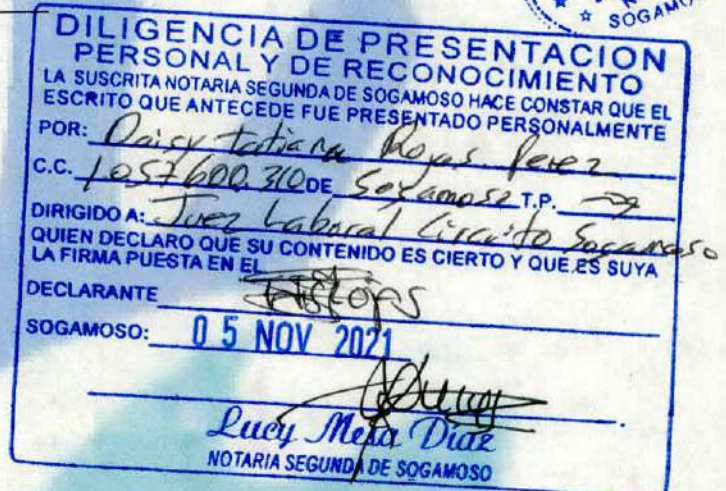 SOGAMO
DILIGENCIA DE PRESENTACION
PERSONAL Y DE RECONOCIMIENTO
LA SUSCRITA NOTARIA SEGUNDA DE SOGAMOSO HACE CONSTAR QUE EL
ESCRITO QUE ANTECEDE FUE PRESENTADO PERSONALMENTE
POR: Daisy tatiana Rojas Perez
C.C. 1057600.310 DE Sogamoso T.P.
DIRIGIDO A: Juez Laboral Circuito Sogamoso
QUIEN DECLARO QUE SU CONTENIDO ES CIERTO Y QUE ES SUYA
LA FIRMA PUESTA EN EL
DECLARANTE
SOGAMOSO: 05 NOV 2021
Lucy Mesa Diaz
NOTARIA SEGUNDA DE SOGAMOSO